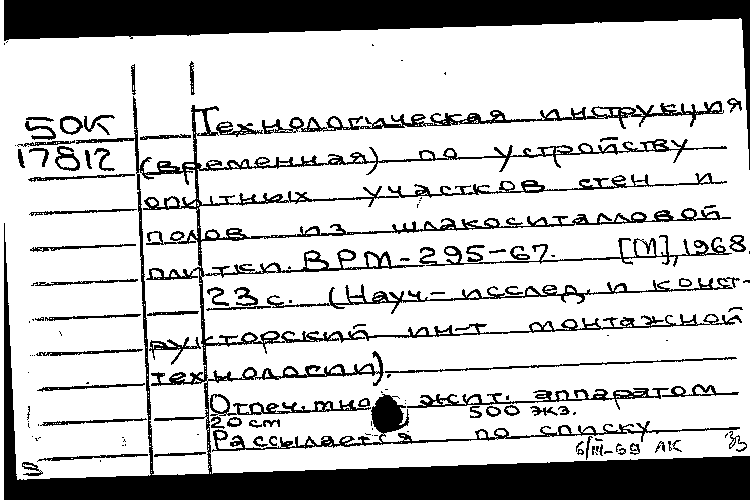 50К Технологическая инструкция
17812 (временная) по устройству
опытных участков стен и
полов из шлакоситалловой
плитки. ВРМ-295-67. [М], 1968.
23 с. (Науч.-исслед. и конст-
рукторский ин-т монтажной
технологии).
Отпеч. множит. аппаратом
20 см 500 экз.
Рассылается по списку.
6/III-69 АК